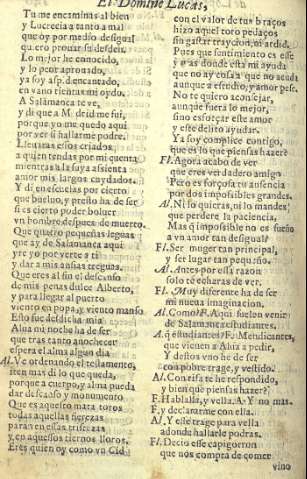 El Domine Lucas,
Tu me encaminas al bien
y Lucrecia a tanto a mal
que oy por medio desigual
quiero prouar su desden.
Lo mejor he conocido,
y lo peor aprouado,
ya soy aspid encantado,
en vano tientas mi oydo.
A Salamanca te ve,
y di que a M. drid me fui,
porque yo me quedo aqui
por ver si hallarme podre.
Lleuaras essos criados
a quien tendas por mi cuenta
mientras la suya assienta
amor mis largos cuydados.
Y di en escuelas por cierto
que bueluo, y presto ha de ser
si es cierto poder boluer
vn hombre despues de muerto.
Que quatro pequeñas leguas
que ay de Salamanca aqui
yre yo por verte a ti
y dar a mis ansias treguas.
Que eres al fin el descanso
de mis penas dulce Alberto,
y para llegar al puerto
viento en popa, y viento manso
Esto fue desdicha mia
Al. una noche ha de ser
que tras tanto anochecer
espera el alma algun dia
Al. Ve ordenando el testamento,
ten mas di lo que queda,
porque a cuerpo, y alma pueda
dar descanso y monumento
Que es aquesto mata toros
todas aquellas fierezas
paran en estas tristezas
y en aquessos tiernos lloros.
Eres quien oy como vn Cid
con el valor de tus braços
hizo aquel toro pedaços
sin gastar traydor, ni ardid.
Pues que sentimiento es esse
y a donde esta mi ayuda
que no ay cosa a que no acuda
aunque a estudio, y amor pese.
No te quiero aconsejar,
aunque fuera lo mejor,
sino esforçar este amor
y este delito ayudar.
Ya soy complice contigo,
que es lo que piensas hazer?
Fl. Agora acabo de ver
que eres verdadero amigo
Pero es forçosa tu ausencia
por dos impossibles grandes.
Al. Ni lo quieras, ni lo mandes
que perdere la paciencia.
Mas que impossible no es sueño
a vn amor tan desigual?
Fl. Ser muger tan principal,
y ser lugar tan pequeño.
Al. Antes por essa razon
solo te echaras de ver.
Fl. Muy diferente ha de ser
mi nueua imaginacion.
Al. Como? Fl. Aqui suelen venir
de Salamanca estudiantes.
A. q̃ estudiantes? Fl. Mendicantes,
que vienen a Alua a pedir,
Y destos vno he de ser
con pobre trage, y vestido.
Al. Con risa te he respondido,
y bien que piensas hazer?
F. Hablalla, y vella. A. Y no mas.
F. y declararme con ella.
Al. Y esse trage para vella
adonde hallarle podras.
Fl. Decio esse capigorron
que nos compra de comer
vino